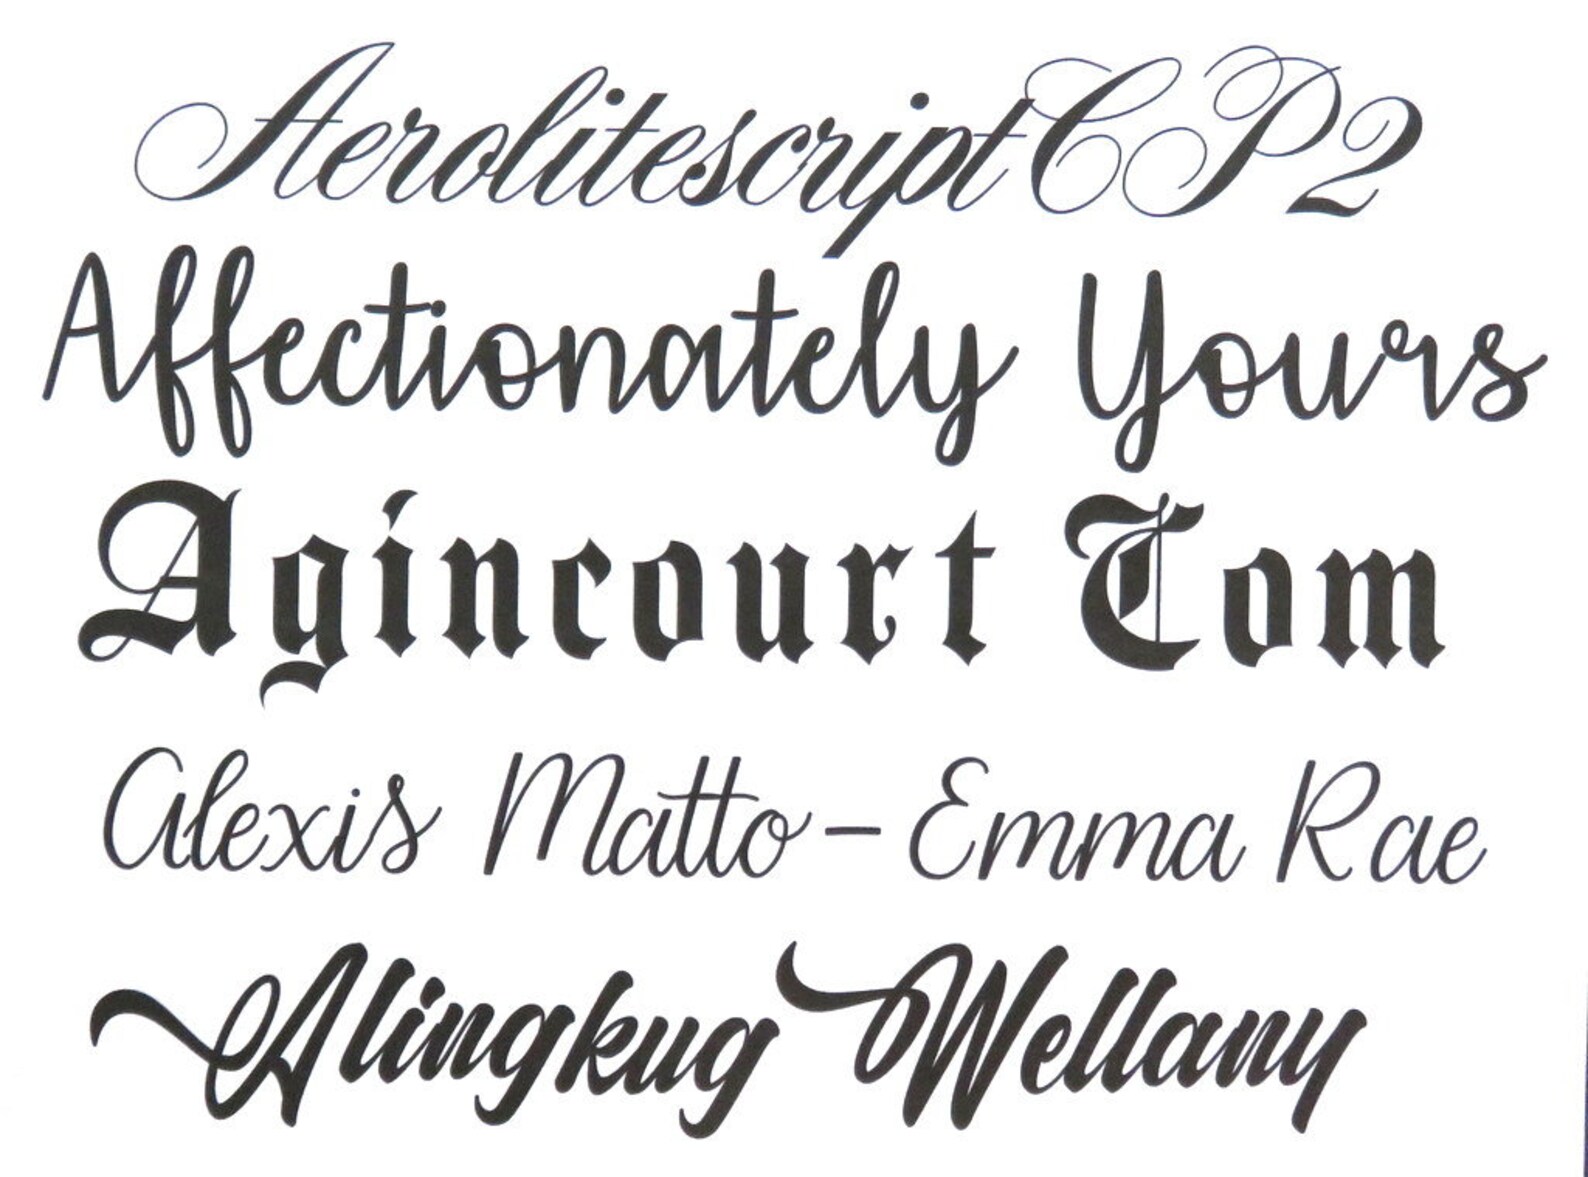 AerolitescriptCP2
Affectionately Yours
Agincourt Com
Alexis Matto - Emma Rae
Alingkug Wellany